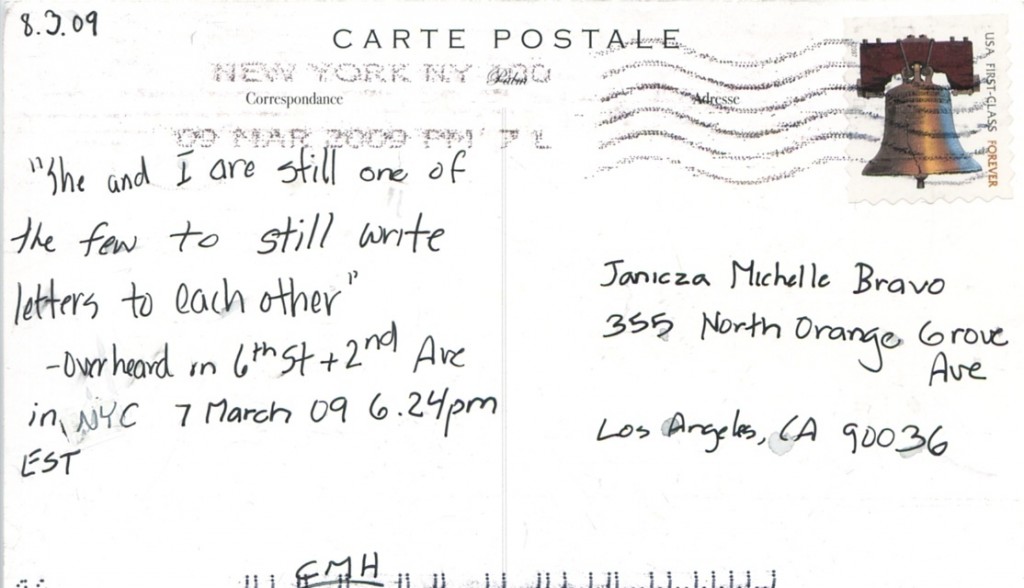 8.3.09
CARTE POSTALE
NEW YORK NY 100
Correspondance
Adresse
09 MAR 2009 PM 7 L
USA FIRST-CLASS FOREVER
"She and I are still one of
the few to still write
letters to each other"
-Overheard in 6th St + 2nd Ave
in, NYC 7 March 09 6.24pm
EST
Janicza Michelle Bravo
355 North Orange Grove
Ave
Los Angeles, CA 90036
EMH